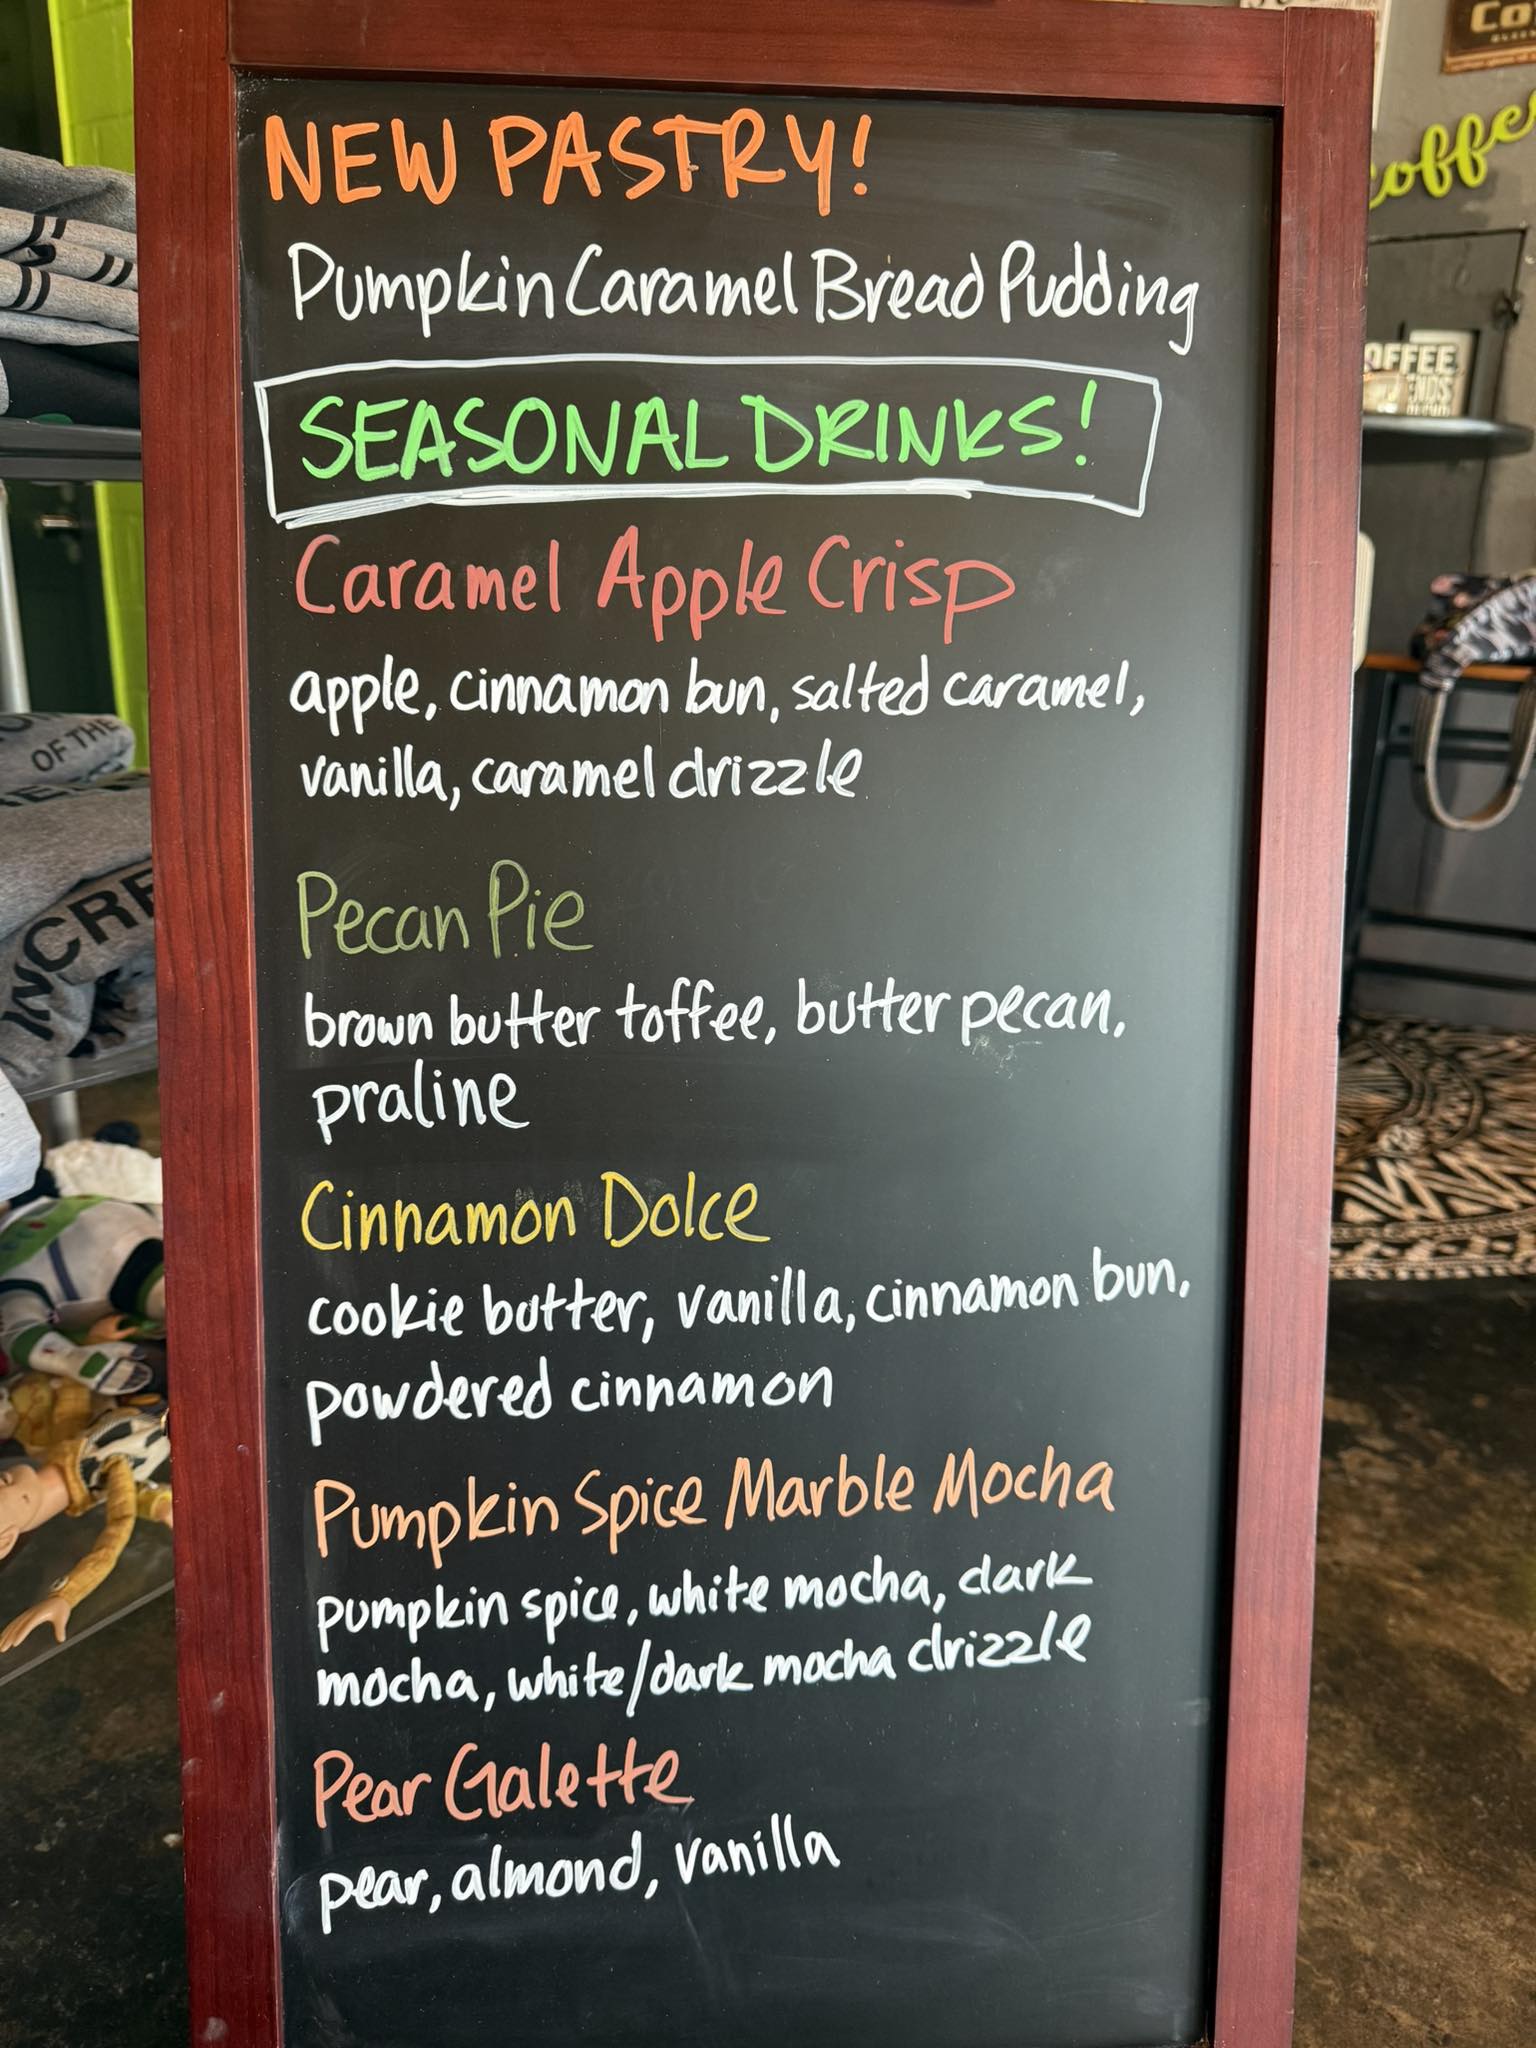 NEW PASTRY!
Pumpkin Caramel Bread Pudding
SEASONAL DRINKS!
Caramel Apple Crisp
apple, cinnamon bun, salted caramel,
vanilla, caramel drizzle
Pecan Pie
brown butter toffee, butter pecan,
praline
Cinnamon Dolce
cookie butter, vanilla, cinnamon bun,
powdered cinnamon
Pumpkin Spice Marble Mocha
pumpkin spice, white mocha, dark
mocha, white/dark mocha drizzle
Pear Galette
pear, almond, vanilla
coffee
OFFEE
OF THE
INCRE